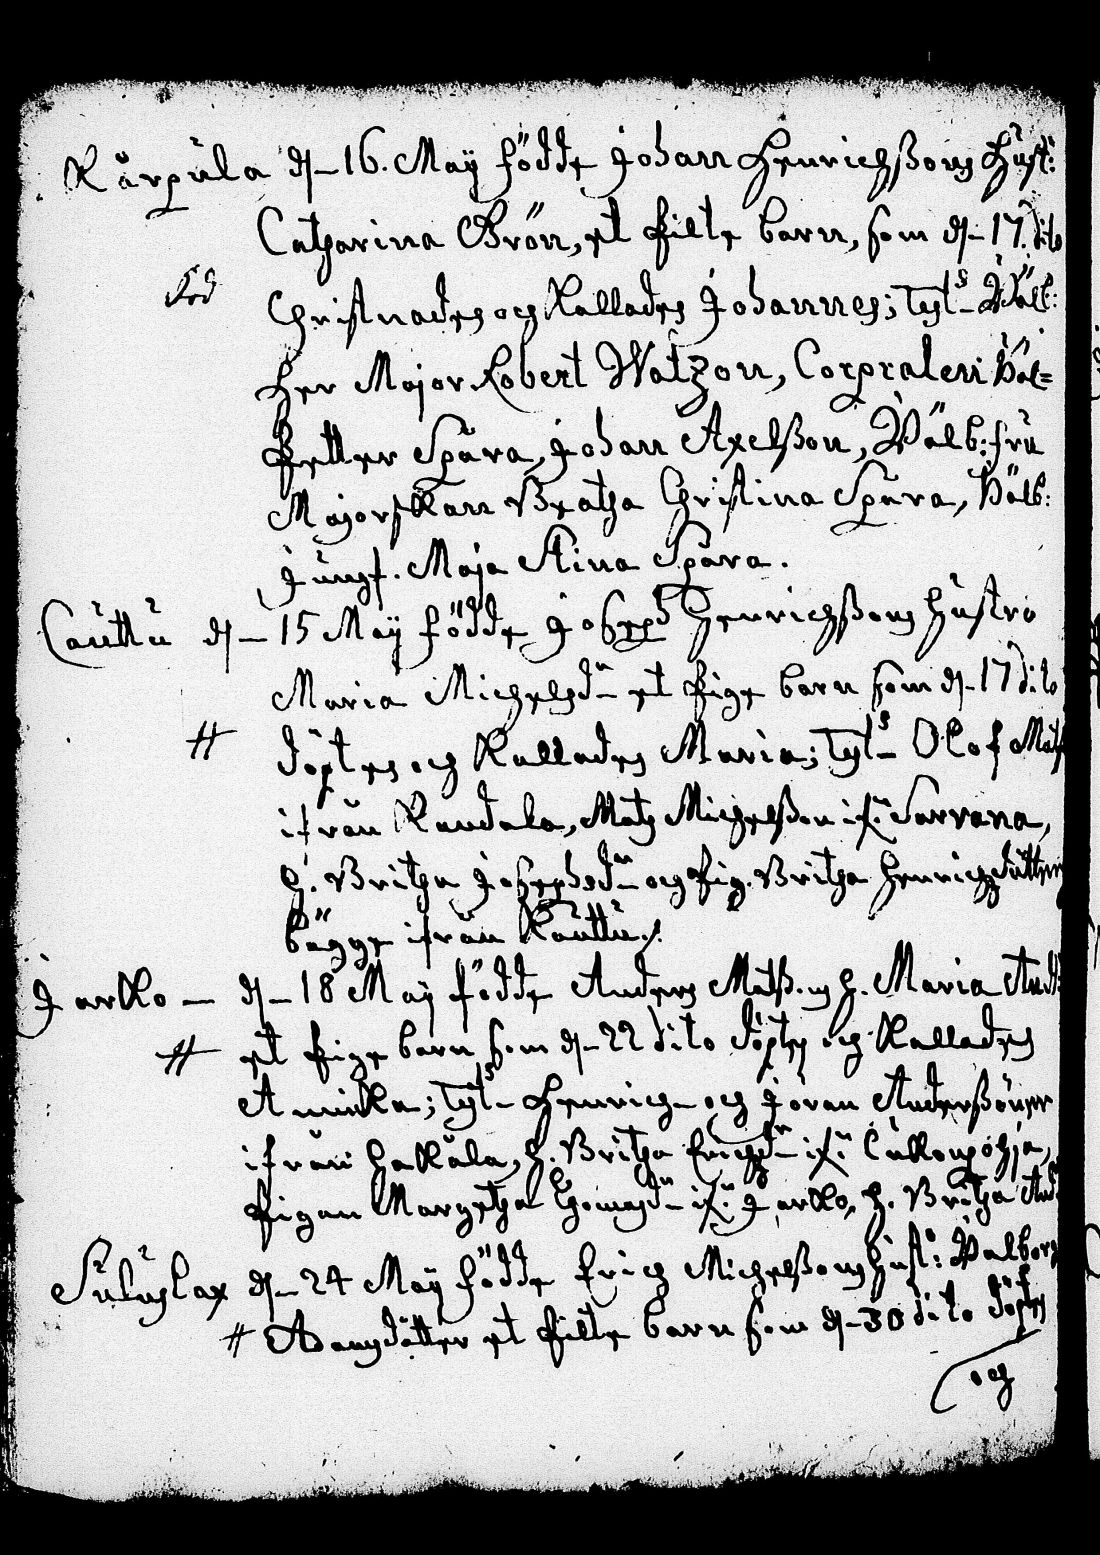 Kårpula dn 16. Maÿ födde Johan Henrichßons Hust:
Catharina Grön, et Pilte barn, som dn 17. dito
Christnades och Kallades Johannes; Tyt-s Wälb:
Her Major Robert Watzon, Corpralen Wäl=
Petter Spåra, Johan Axelßon, Wälb: fru
Majorskan Breatha Christina Spåra, Wälb:
Jungf. Maja Stina Spåra.
Cauttu dn 15 Maÿ födde Joseph Henrichßons hustro
Maria Michelsdn et Pige barn som dn 17 dito
# döptes och Kallades Maria; Tyt-s Olof Mats
ifrån Randala, Mats Michelßon if: Sarvana,
h. Britha Josephsdn och Pig. Britha Henrichsdutter
bägge ifrån Kauttu.
Jarkko dn 18 Maÿ födde Anders Matß.ns h. Maria And:
# et Pige barn som dn 22 dito döptes och Kallades
Annika; Tyt-s Henrich och Jöran Anderßöner
ifrån Hakala, h. Britha Erichsdn if: Cukonpohja,
Pigan Margetha Thomasdn if: Jarkko, h. Britha And:
Sutuslax dn 24 Maÿ födde Erich Michelßons hust: Walborg
# Adamsdötter et Pilte barn som dn 30 dito döptes
och